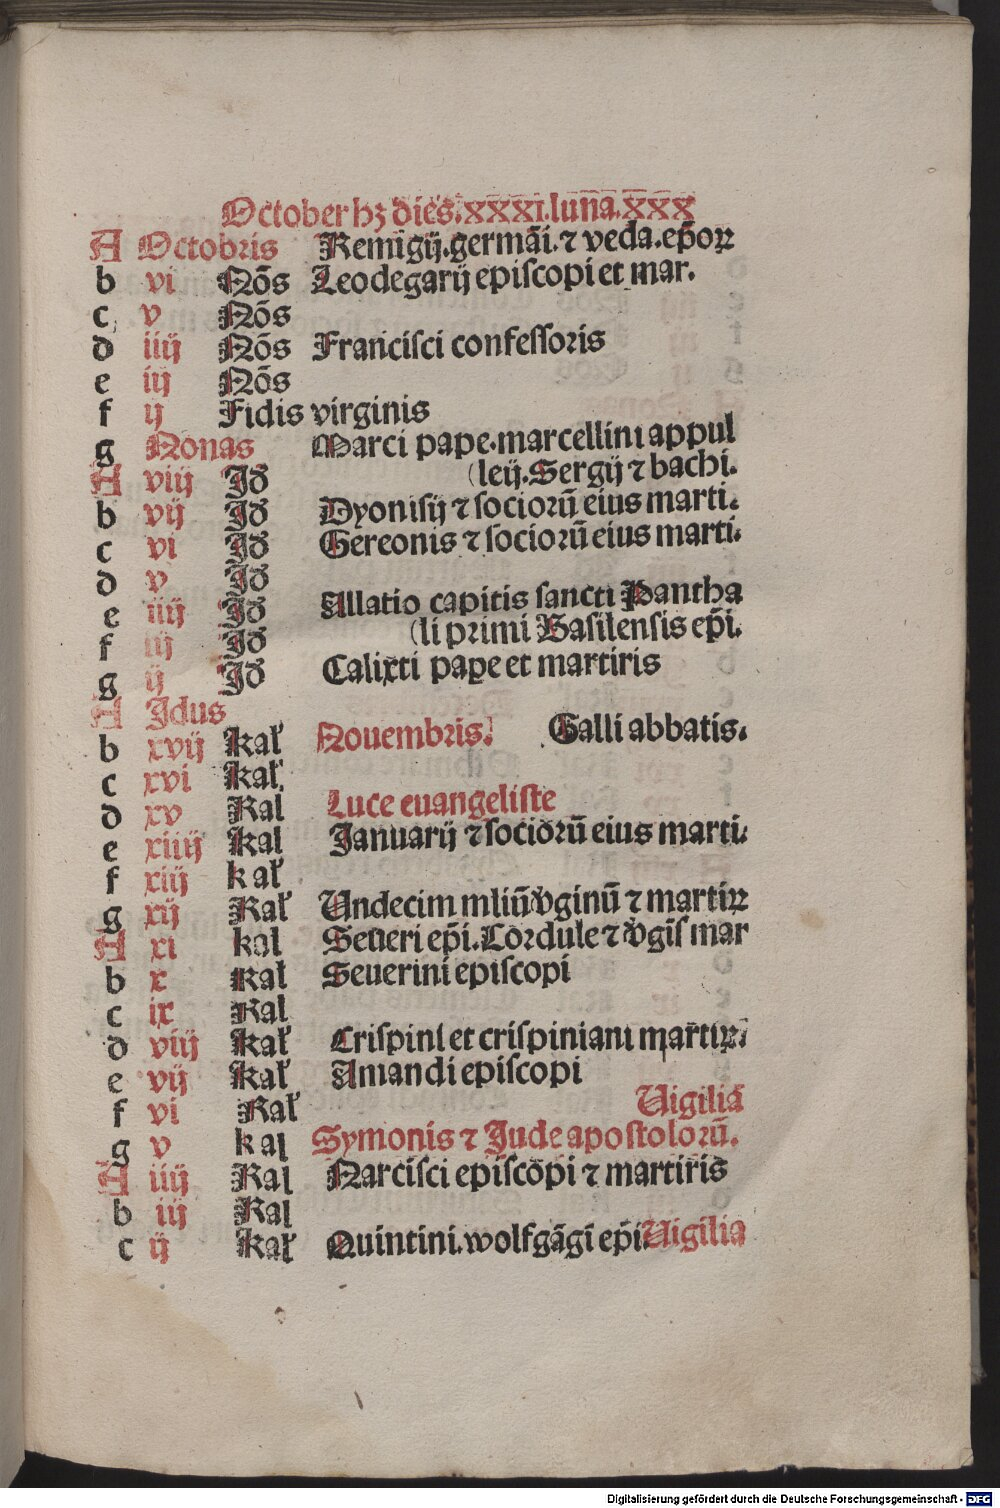 October hꝫ dies.xxxi.luna.xxx
A Octobris Remigij.germāi.⁊ veda.ep̄oꝝ
b vi Nōs Leodegarij episcopi et mar.
c v Nōs
d iiij Nōs Francisci confessoris
e iij Nōs
f ij Fidis virginis
g Nonas Marci pape.marcellini appul
(leij.Sergij ⁊ bachi.
A viij Jd
b vij Jd Dyonisij ⁊ sociorū eius marti.
c vi Jd Gereonis ⁊ sociorū eius marti.
d v Jd
e iiij Jd Allatio capitis sancti Pantha
(li primi Basilensis ep̄i.
f iij Jd
g ij Jd Calixti pape et martiris
A Jdus
b xvij kal̕ Nouembris. Galli abbatis.
c xvi kal̕
d xv Kal Luce euangeliste
e xiiij kal Januarij ⁊ sociorū eius marti.
f xiij kal̕
g xij Kal̕ Undecim mliū v̄ginū ⁊ martiꝝ
A xi kal Seueri ep̄i.Cordule ⁊ v̄gis̄ mar
b x Kal Seuerini episcopi
c ix Kal
d viij kal̕ Crispini et crispiniani martiꝝ.
e vij kal̕ Amandi episcopi
f vi Kal̕ Uigilia
g v kal Symonis ⁊ Jude apostolorū.
A iiij Kal Narcisci episcopi ⁊ martiris
b iij Kal
c ij kal̕ Quintini.wolfgāgi ep̄i.Uigilia
Digitalisierung gefördert durch die Deutsche Forschungsgemeinschaft - DFG